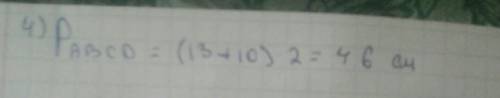 4) P ABCD = (13+10) 2 = 46 см